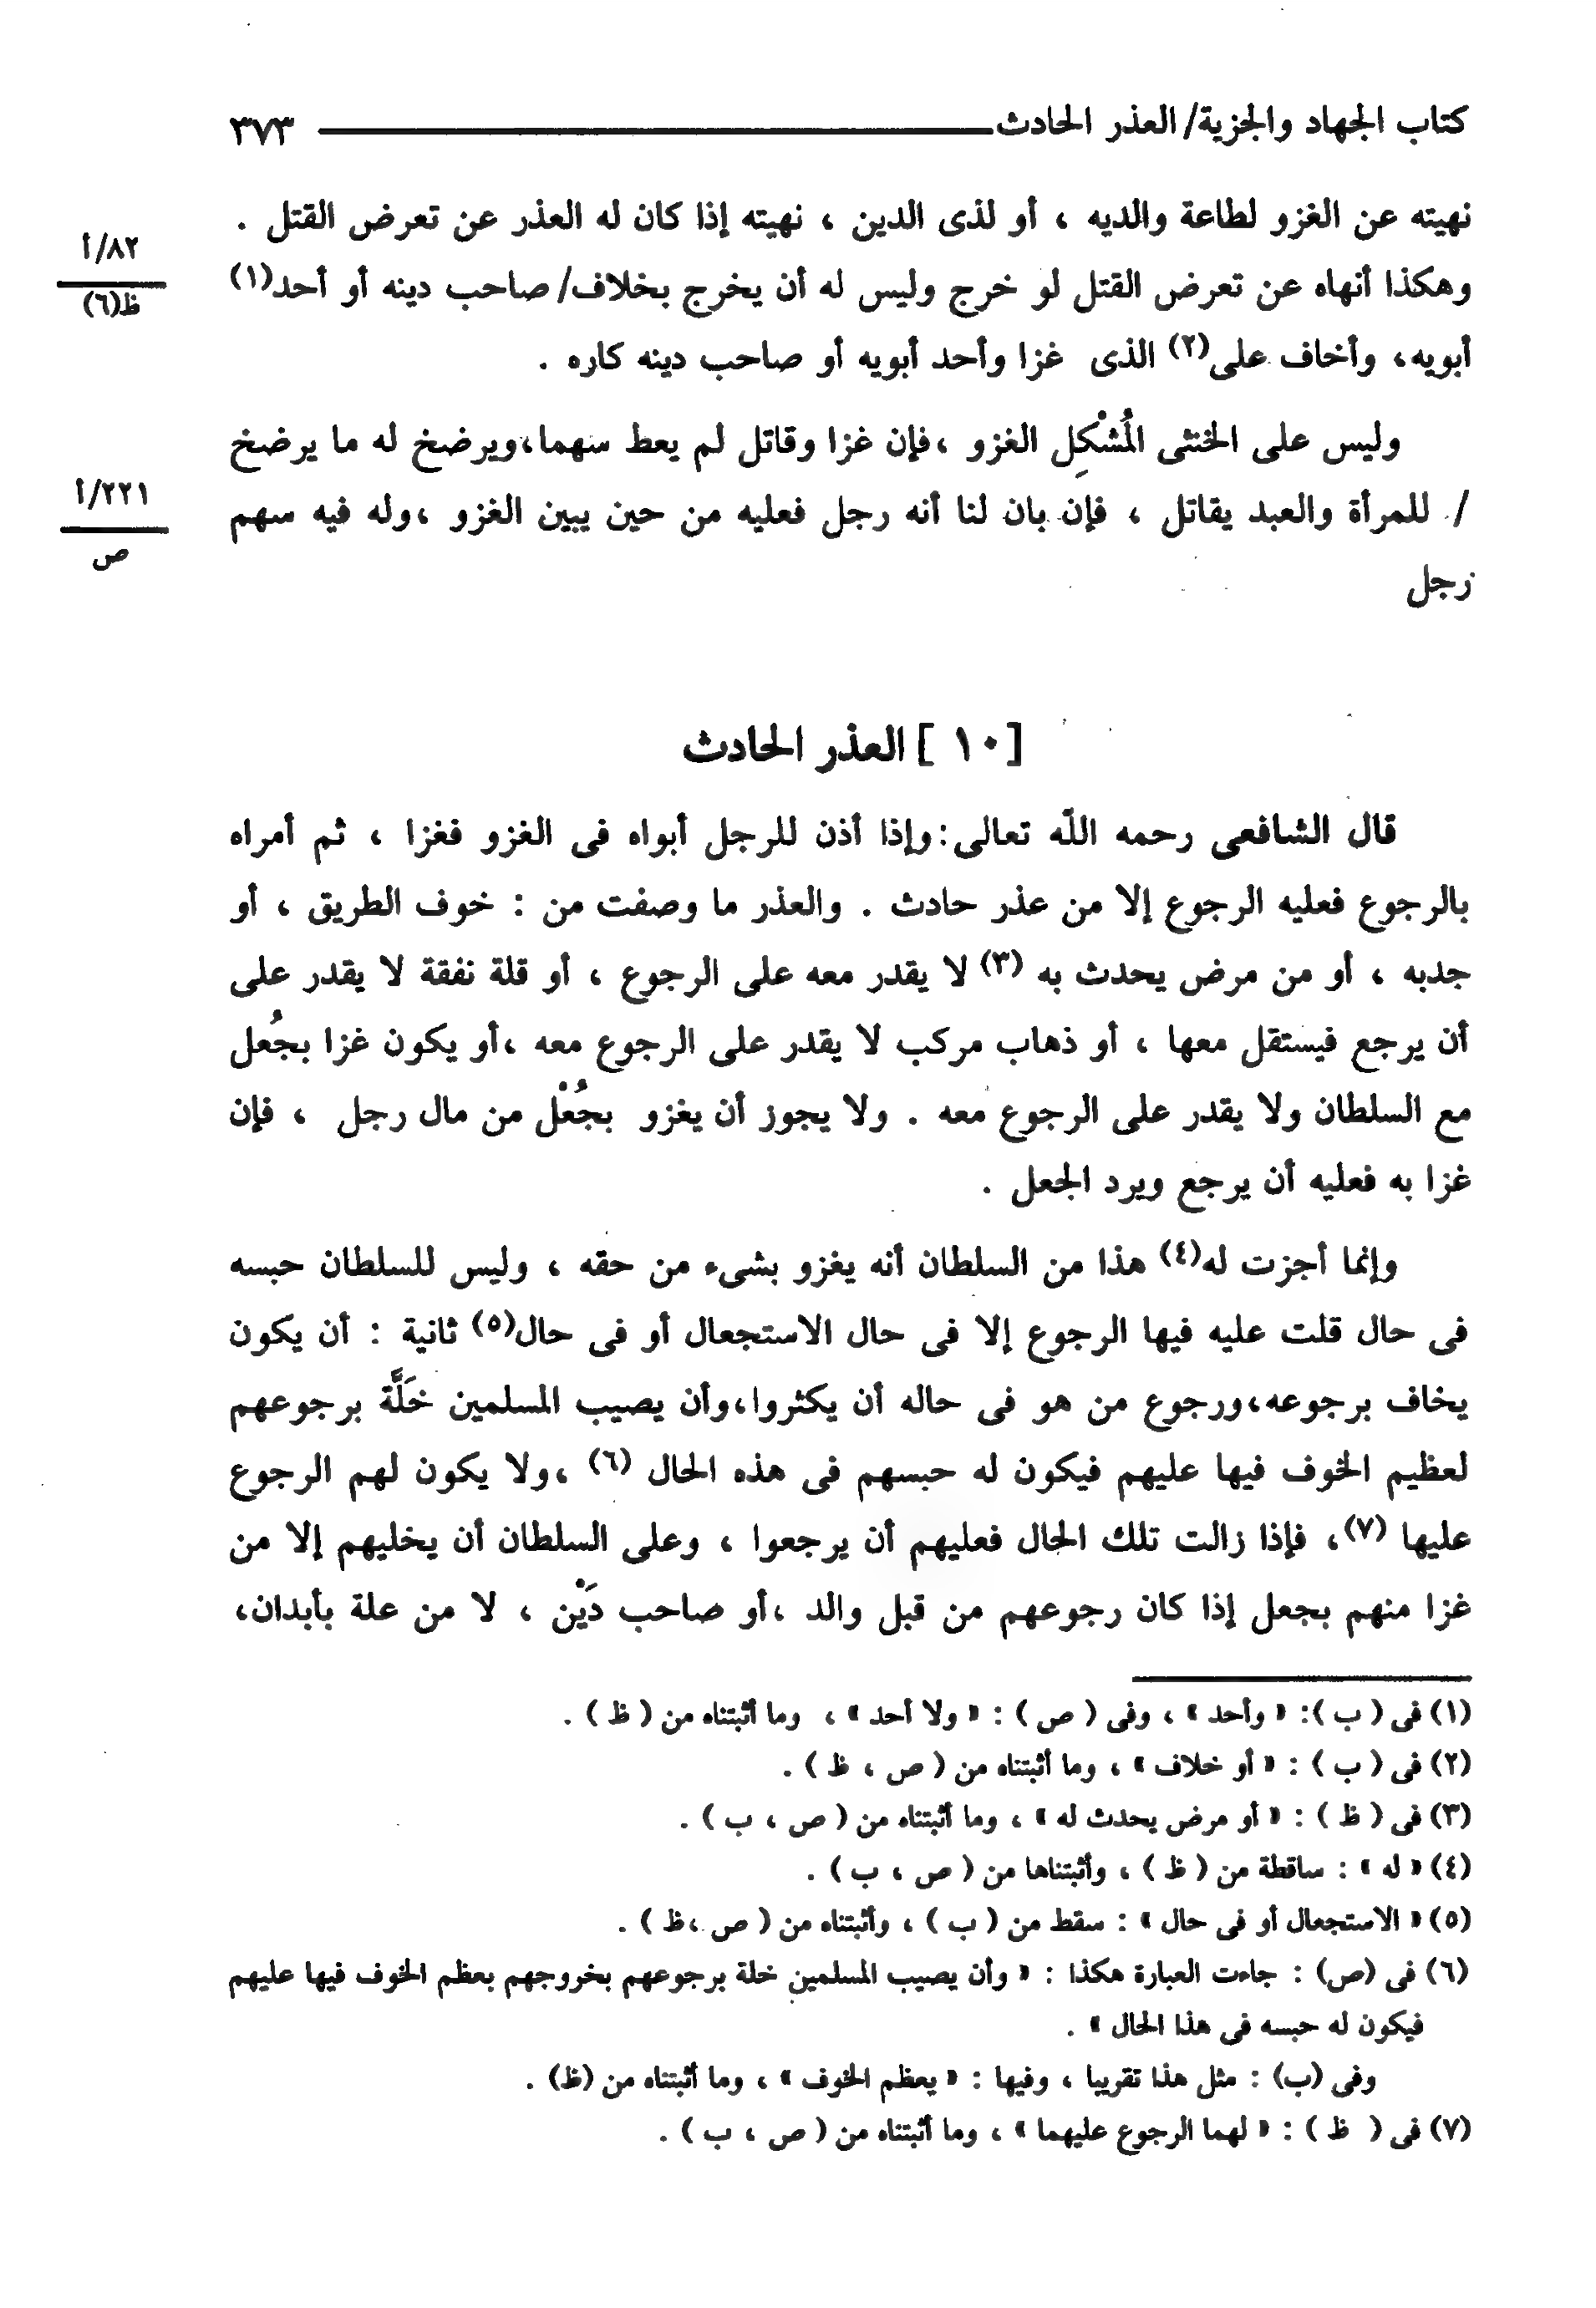 كتاب الجهاد والجزية/ العذر الحادث ٣٧٣
نهيته عن الغزو لطاعة والديه ، أو لذى الدين ، نهيته إذا كان له العذر عن تعرض القتل .
٨٢/أ
ظ(٦)
وهكذا أنهاه عن تعرض القتل لو خرج وليس له أن يخرج بخلاف/ صاحب دينه أو أحد(١)
أبويه، وأخاف على(٢) الذى غزا وأحد أبويه أو صاحب دينه كاره .
وليس على الخنثى المُشْكِل الغزو ،فإن غزا وقاتل لم يعط سهما،ويرضخ له ما يرضخ
٢٢١/أ
ص
/ للمرأة والعبد يقاتل ، فإن بان لنا أنه رجل فعليه من حين يبين الغزو ،وله فيه سهم
رجل
[١٠ ] العذر الحادث
قال الشافعى رحمه اللّه تعالى:وإذا أذن للرجل أبواه فى الغزو فغزا ، ثم أمراه
بالرجوع فعليه الرجوع إلا من عذر حادث . والعذر ما وصفت من : خوف الطريق ، أو
جدبه ، أو من مرض يحدث به (٣) لا يقدر معه على الرجوع ، أو قلة نفقة لا يقدر على
أن يرجع فيستقل معها ، أو ذهاب مركب لا يقدر على الرجوع معه ،أو يكون غزا بجُعل
مع السلطان ولا يقدر على الرجوع معه . ولا يجوز أن يغزو بجُعْل من مال رجل ، فإن
غزا به فعليه أن يرجع ويرد الجعل .
وإنما أجزت له(٤) هذا من السلطان أنه يغزو بشىء من حقه ، وليس للسلطان حبسه
فى حال قلت عليه فيها الرجوع إلا فى حال الاستجعال أو فى حال(٥) ثانية : أن يكون
يخاف برجوعه،ورجوع من هو فى حاله أن يكثروا،وأن يصيب المسلمين خَلَّة برجوعهم
لعظيم الخوف فيها عليهم فيكون له حبسهم فى هذه الحال (٦) ،ولا يكون لهم الرجوع
عليها (٧)، فإذا زالت تلك الحال فعليهم أن يرجعوا ، وعلى السلطان أن يخليهم إلا من
غزا منهم بجعل إذا كان رجوعهم من قبل والد ،أو صاحب دَيْن ، لا من علة بأبدان،
(١) فى ( ب ): « وأحد » ، وفى ( ص ) : « ولا أحد » ، وما أثبتناه من ( ظ ) .
(٢) فى ( ب ) : « أو خلاف » ، وما أثبتناه من ( ص ، ظ ) .
(٣) فى ( ظ ) : « أو مرض يحدث له » ، وما أثبتناه من ( ص ، ب ) .
(٤) « له » : ساقطة من ( ظ ) ، وأثبتناها من ( ص ، ب ) .
(٥) « الاستجعال أو فى حال » : سقط من ( ب ) ، وأثبتناه من ( ص ،ظ ) .
(٦) فى (ص) : جاءت العبارة هكذا : « وأن يصيب المسلمين خلة برجوعهم بخروجهم بعظم الخوف فيها عليهم
فيكون له حبسه فى هذا الحال » .
وفى (ب) : مثل هذا تقريبا ، وفيها : « يعظم الخوف » ، وما أثبتناه من (ظ) .
(٧) فى ( ظ ) : « لهما الرجوع عليهما » ، وما أثبتناه من ( ص ، ب ) .